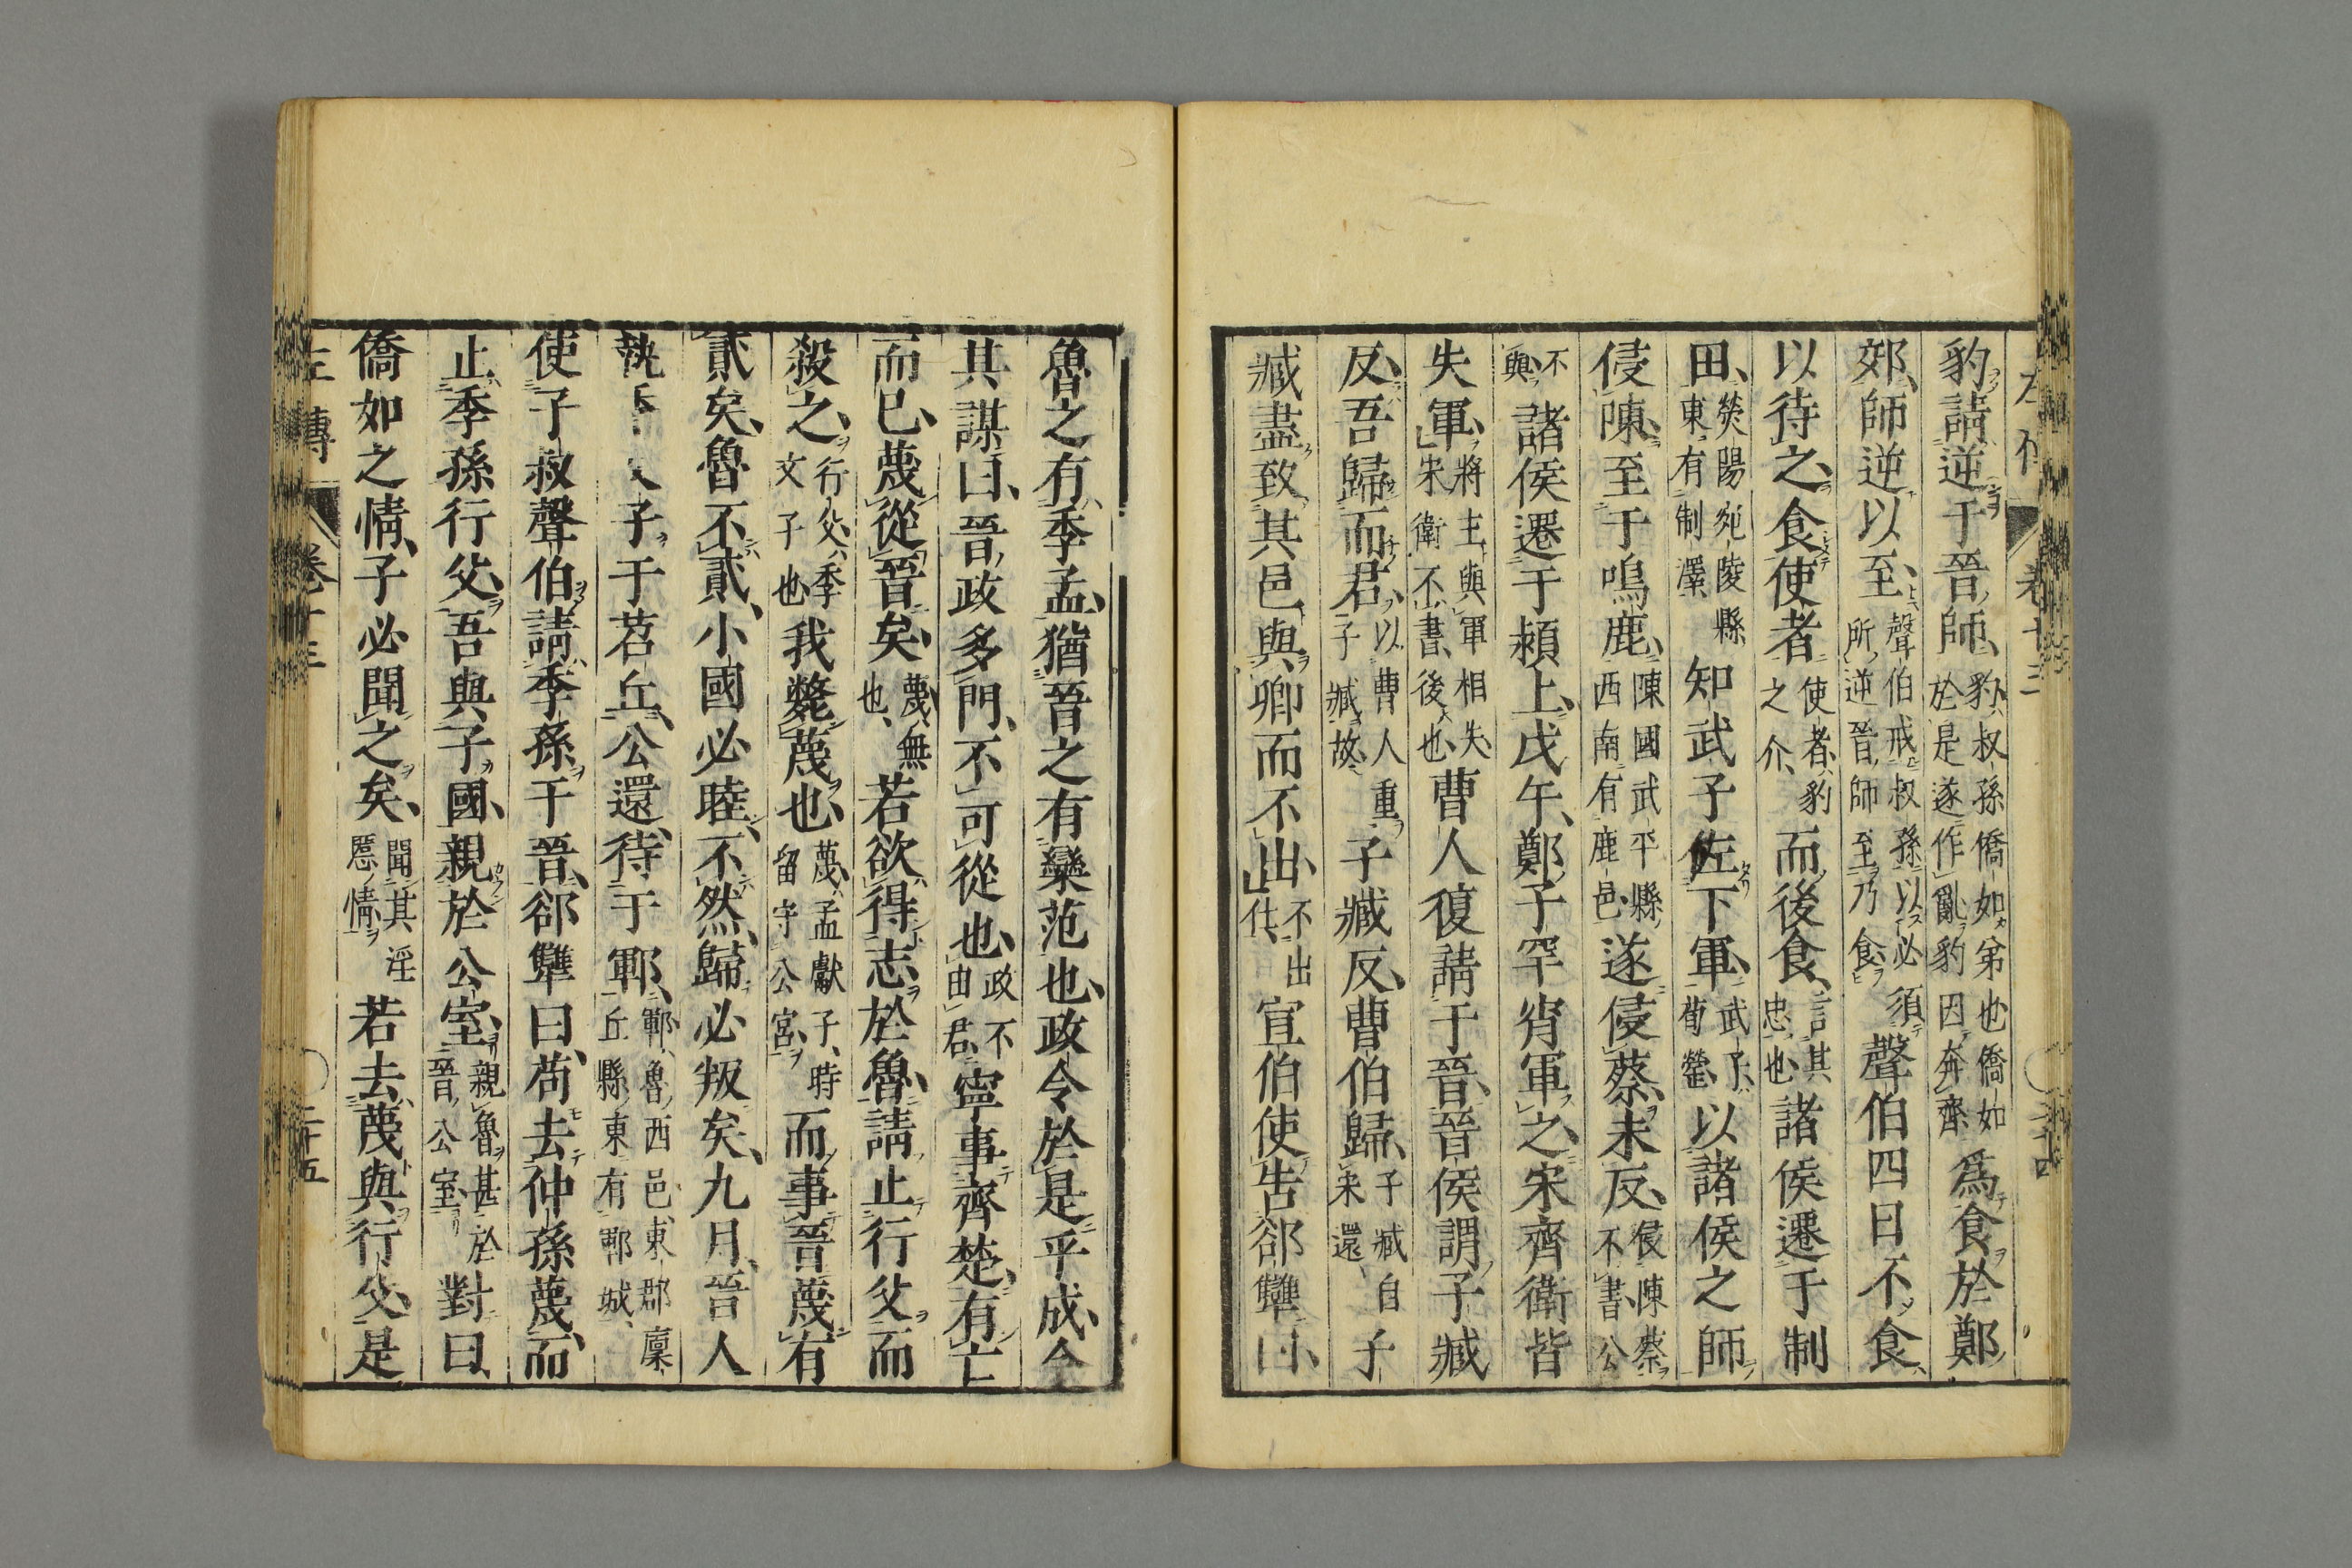 豹請逆于晉師豹叔孫僑如弟也僑如於是遂作亂豹因奔齊爲食於鄭
郊師逆以至聲伯戒叔孫以必須所逆晉師至乃食聲伯四日不食
以待之食使者使者豹之介而後食言其忠也諸侯遷于制
田滎陽宛陵縣東有制澤知武子佐下軍武子荀罃以諸侯之師
侵陳至于鳴鹿陳國武平縣西南有鹿邑遂侵蔡未反侵陳蔡不書公
不與諸侯遷于潁上戊午鄭子罕宵軍之宋齊衛皆
失軍將主與軍相失宋衛不書後也曹人復請于晉晉侯謂子臧
反吾歸而君以曹人重子臧故子臧反曹伯歸子臧自宋還子
臧盡致其邑與卿而不出不出仕宣伯使告郤犨曰
魯之有季孟猶晉之有欒范也政令於是乎成今
其謀曰晉政多門不可從也政不由君寧事齊楚有亡
而已蔑從晉矣蔑無也若欲得志於魯請止行父而
殺之行父季文子也我斃蔑也蔑孟獻子時留守公宮而事晉蔑有
貳矣魯不貳小國必睦不然歸必叛矣九月晉人
執季文子于苕丘公還待于鄆鄆魯西邑東郡廩丘縣東有鄆城
使子叔聲伯請季孫于晉郤犨曰苟去仲孫蔑而
止季孫行父吾與子國親於公室親魯甚於晉公室對曰
僑如之情子必聞之矣聞其淫慝情若去蔑與行父是
左傳 卷十三 二十五